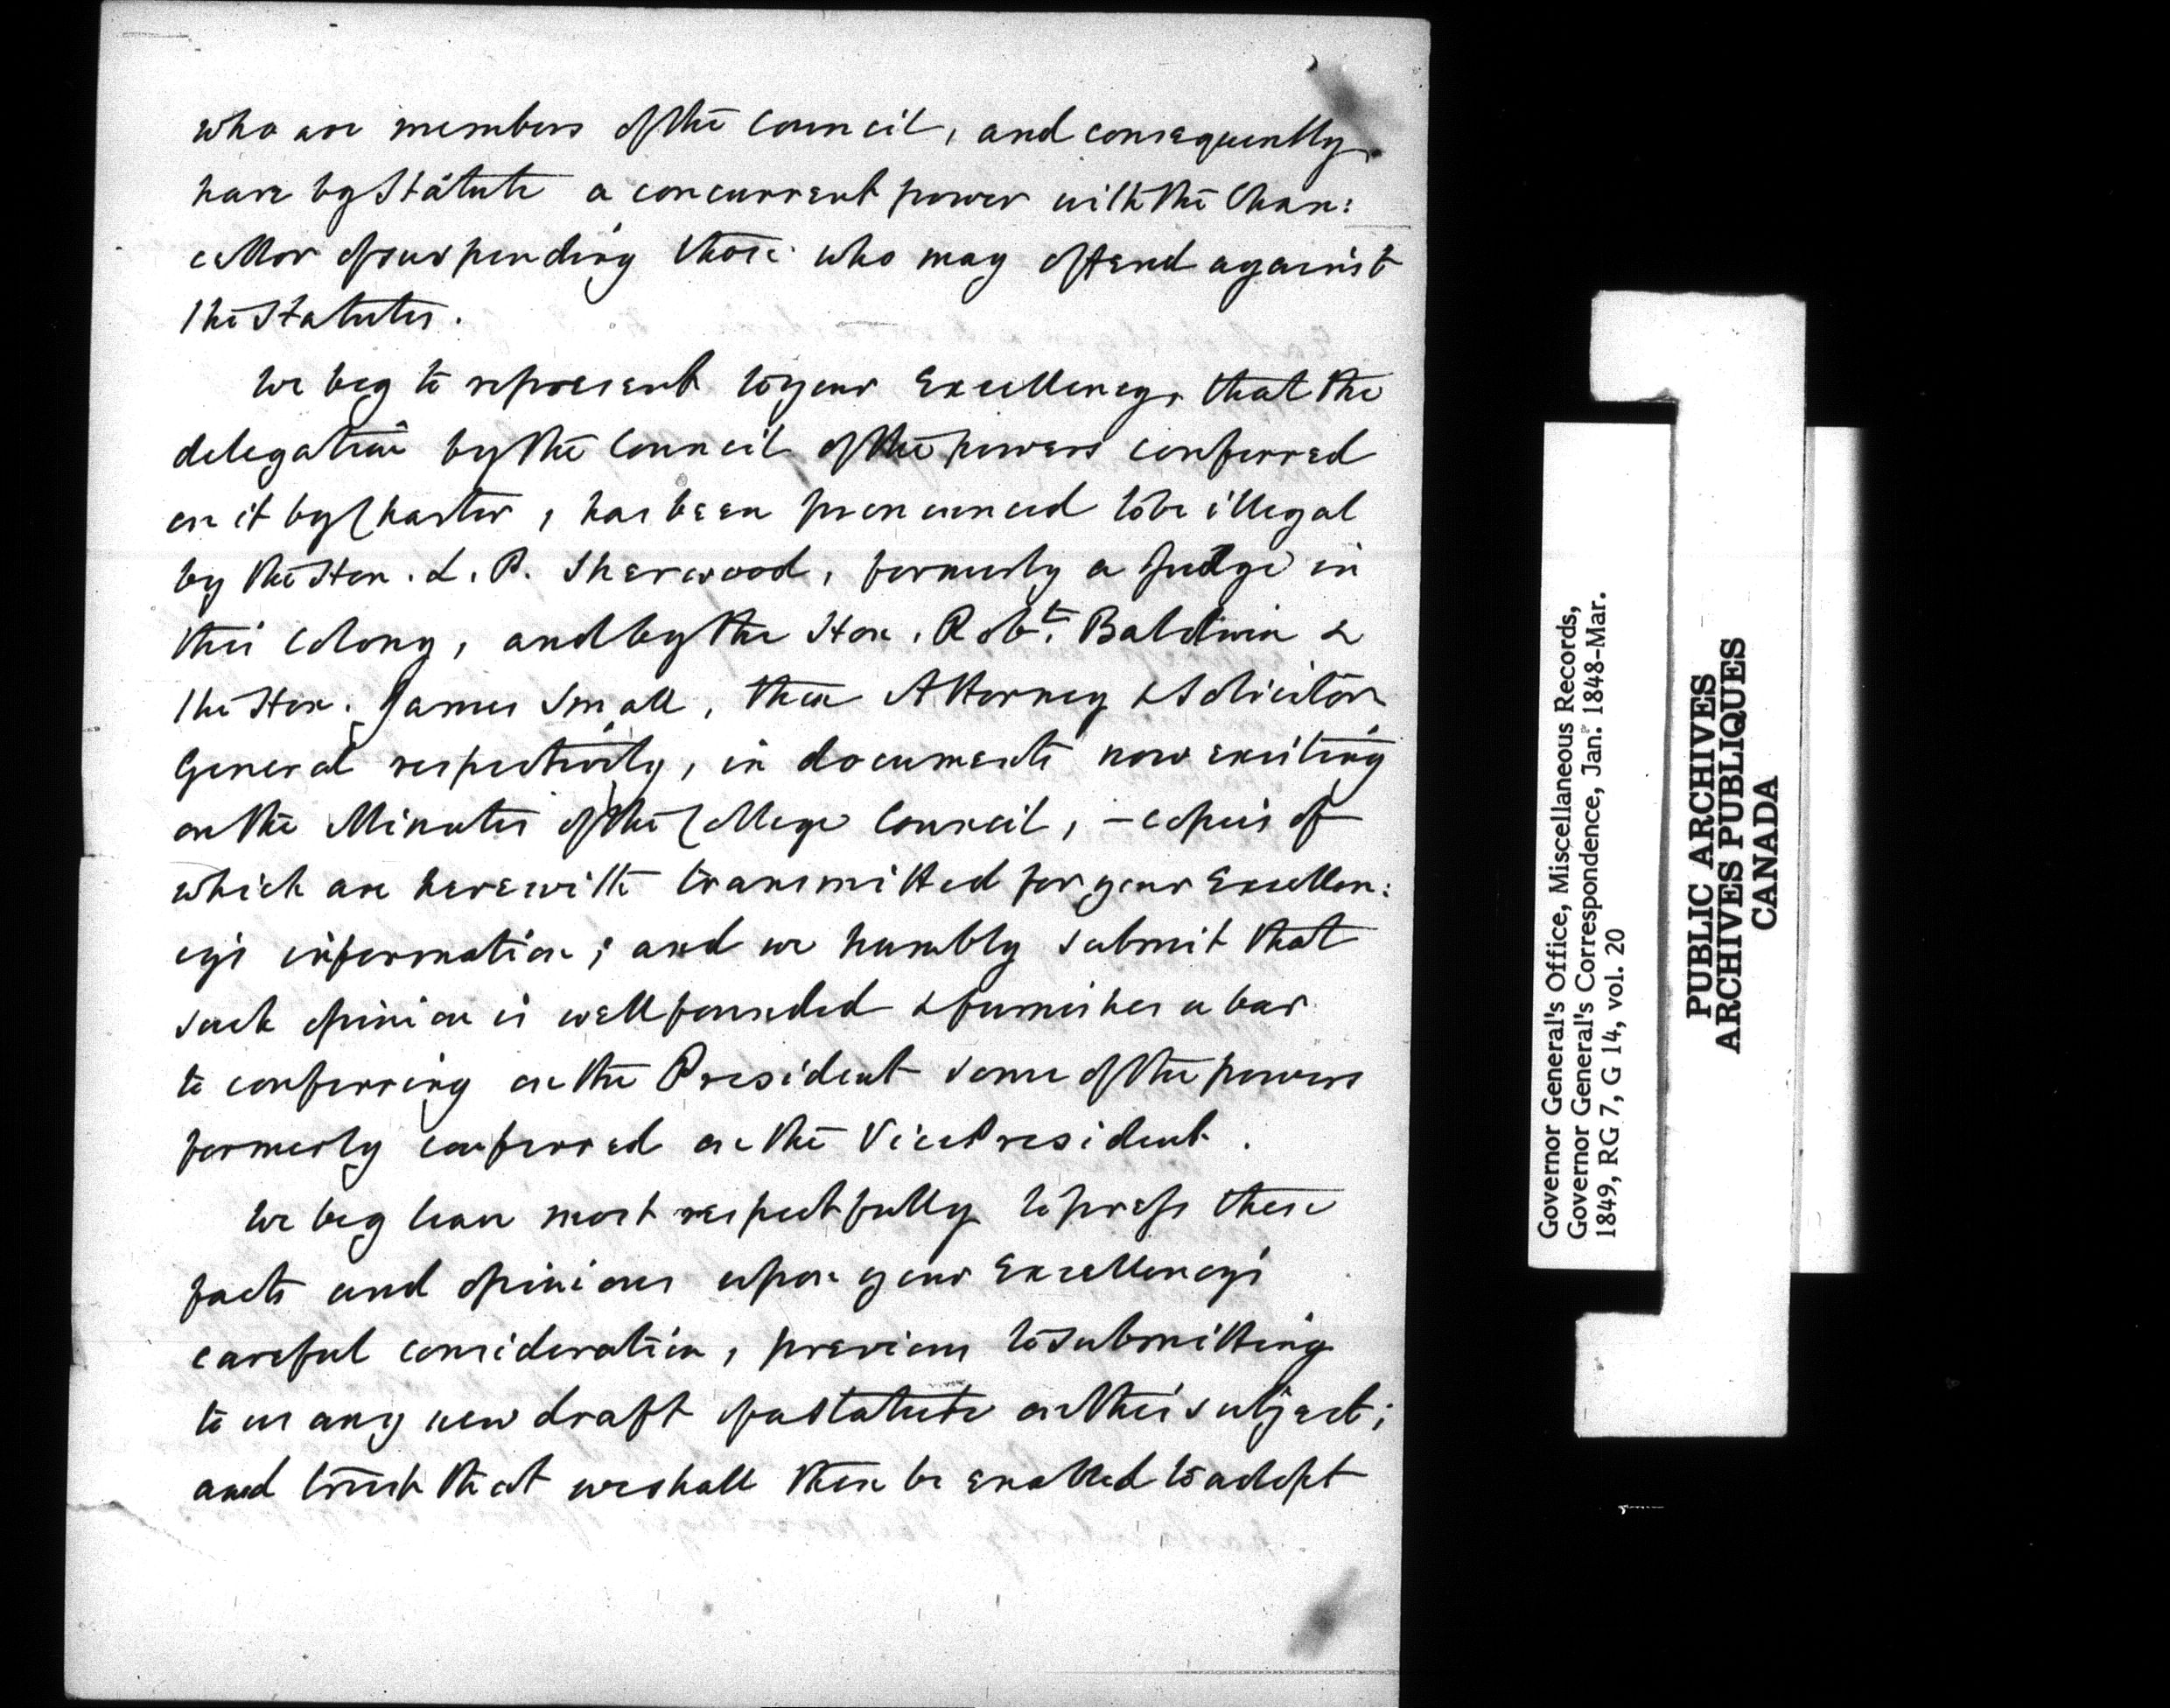 who are members of the Council, and consequently
have by Statute a concurrent power with the Chan:
cellor of suspending those who may offend against
the Statutes.
We beg to represent to your Excellency, that the
delegation by the Council of the powers conferred
on it by Charter, has been pronounced to be illegal
by the Hon. L. P. Sherwood, formerly a Judge in
this Colony, and by the Hon. Robt. Baldwin &
the Hon. James Small, then Attorney & Solicitor
General respectively, in documents now existing
on the Minutes of the College Council, – copies of
which are herewith transmitted for your Excellen:
cy's information; and we humbly submit that
such opinion is well founded & furnishes a bar
to conferring on the President some of the powers
formerly conferred on the Vice President.
We beg leave most respectfully to press these
facts and opinions upon your Excellency's
careful consideration, previous to submitting
to us any new draft of a Statute on this subject;
and trust that we shall then be enabled to adopt
Governor General's Office, Miscellaneous Records,
Governor General's Correspondence, Jan. 1848-Mar.
1849, RG 7, G 14, vol. 20
PUBLIC ARCHIVES
ARCHIVES PUBLIQUES
CANADA